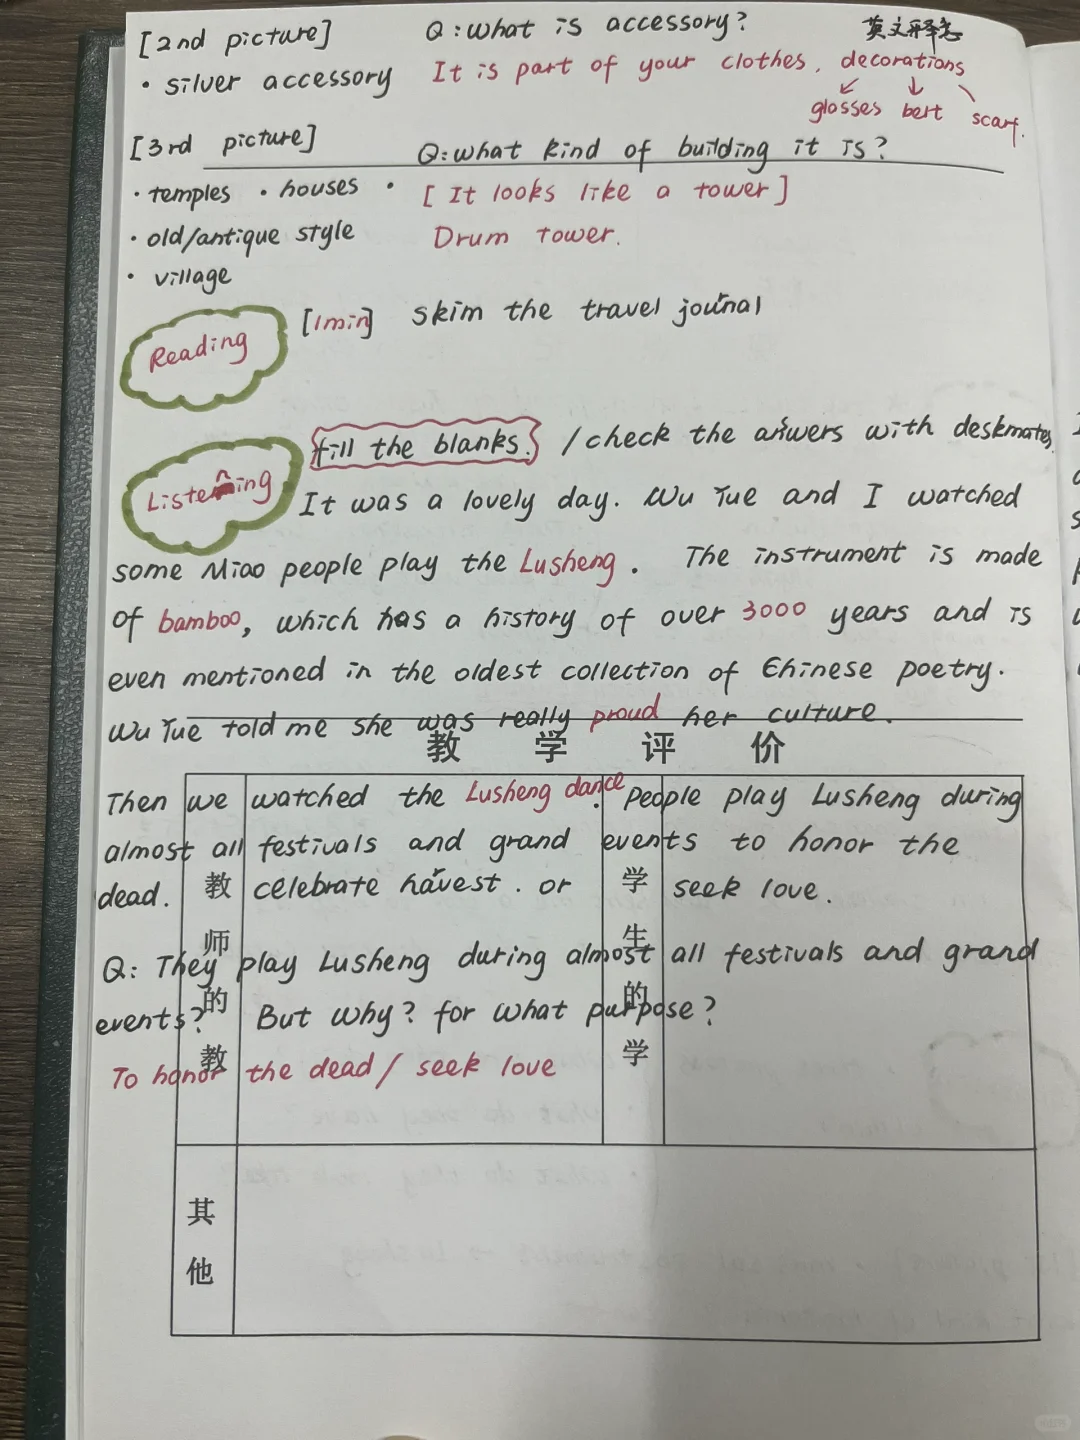 [2nd picture] Q: What is accessory? 英文释意
· silver accessory It is part of your clothes, decorations
glasses bert scarf.
[3rd picture] Q: What kind of building it is?
· temples · houses · [It looks like a tower]
· old/antique style Drum tower.
· village
Reading [1min] skim the travel journal
fill the blanks. /check the answers with deskmates.
Listening It was a lovely day. Wu Yue and I watched
some Miao people play the Lusheng. The instrument is made
of bamboo, which has a history of over 3000 years and is
even mentioned in the oldest collection of Chinese poetry.
Wu Yue told me she was really proud her culture.
教 学 评 价
Then we watched the Lusheng dance. People play Lusheng during
almost all festivals and grand events to honor the
dead. celebrate harvest. or seek love.
Q: They play Lusheng during almost all festivals and grand
events? But why? for what purpose?
To honor the dead/ seek love
教师的教
学生的学
其他